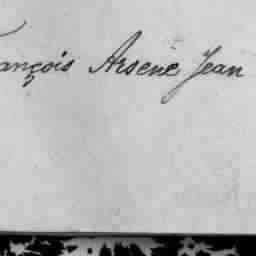 ançois Arsène Jean